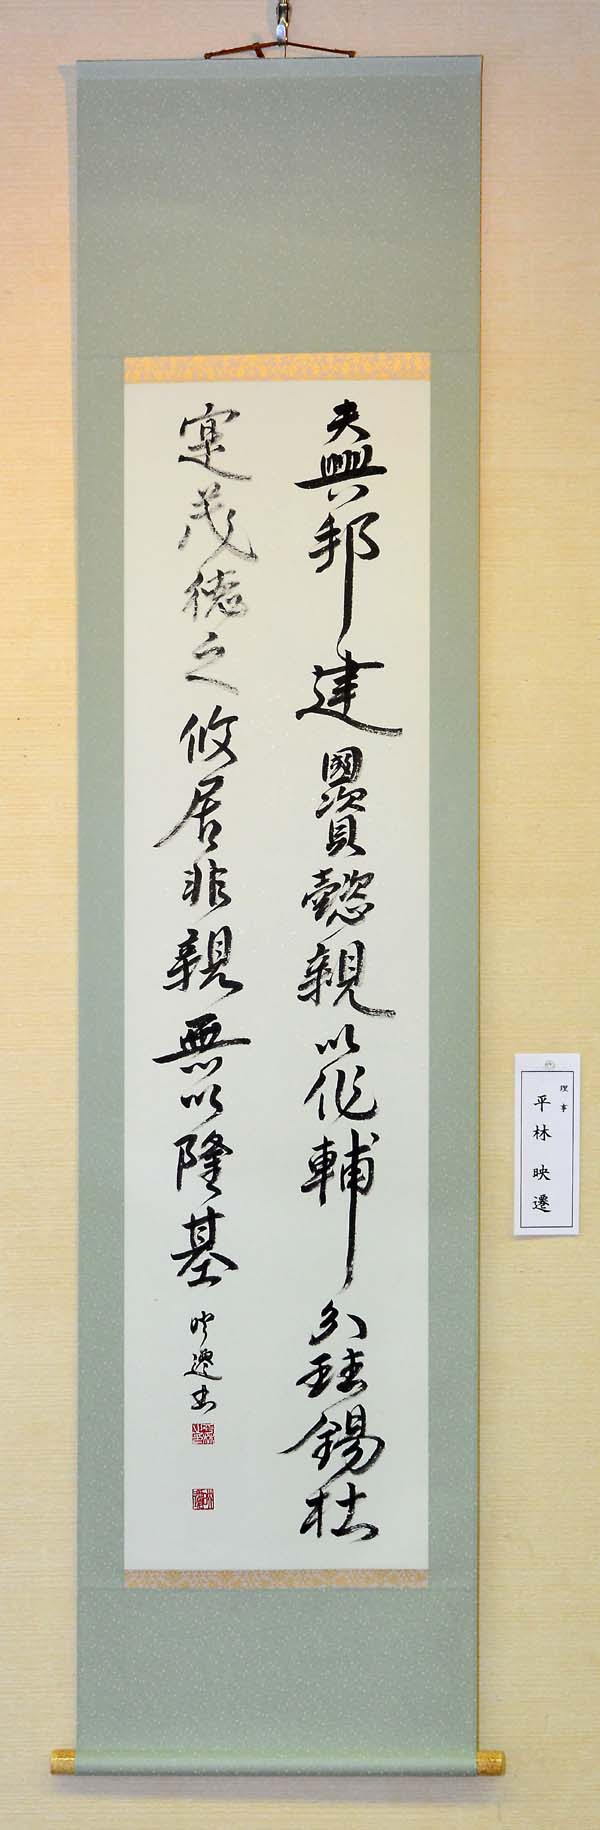 夫興邦建國資懿親以作輔分珪錫社
寔茂徳之攸居非親無以隆基 映遷書
理事
平林 映遷